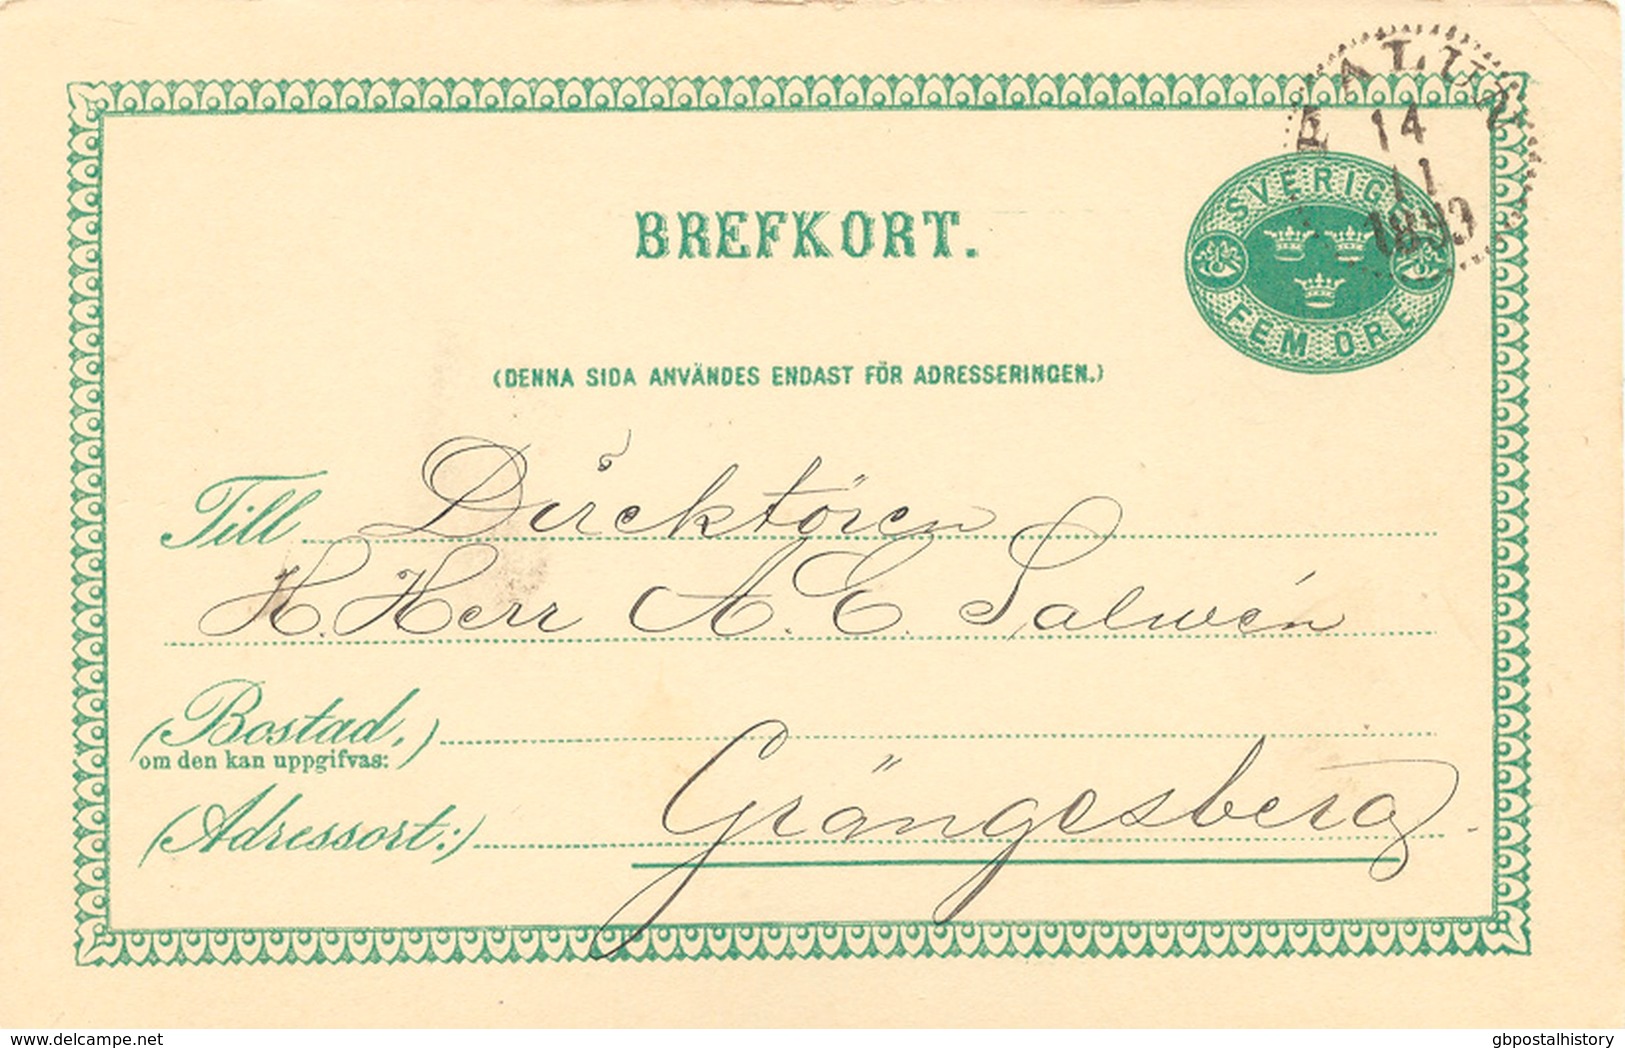 FALUN
14
11
1893
SVERIGE
FEM ÖRE
BREFKORT.
(DENNA SIDA ANVÄNDES ENDAST FÖR ADRESSERINGEN.)
Till Direktören
H. Herr A. E. Salwén
(Bostad,)
om den kan uppgifvas:
(Adressort:) Grängesberg.
delcampe.net
gbpostalhistory